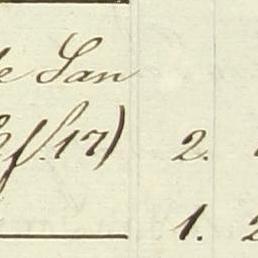 de San
f. 17) 2.
1. 2